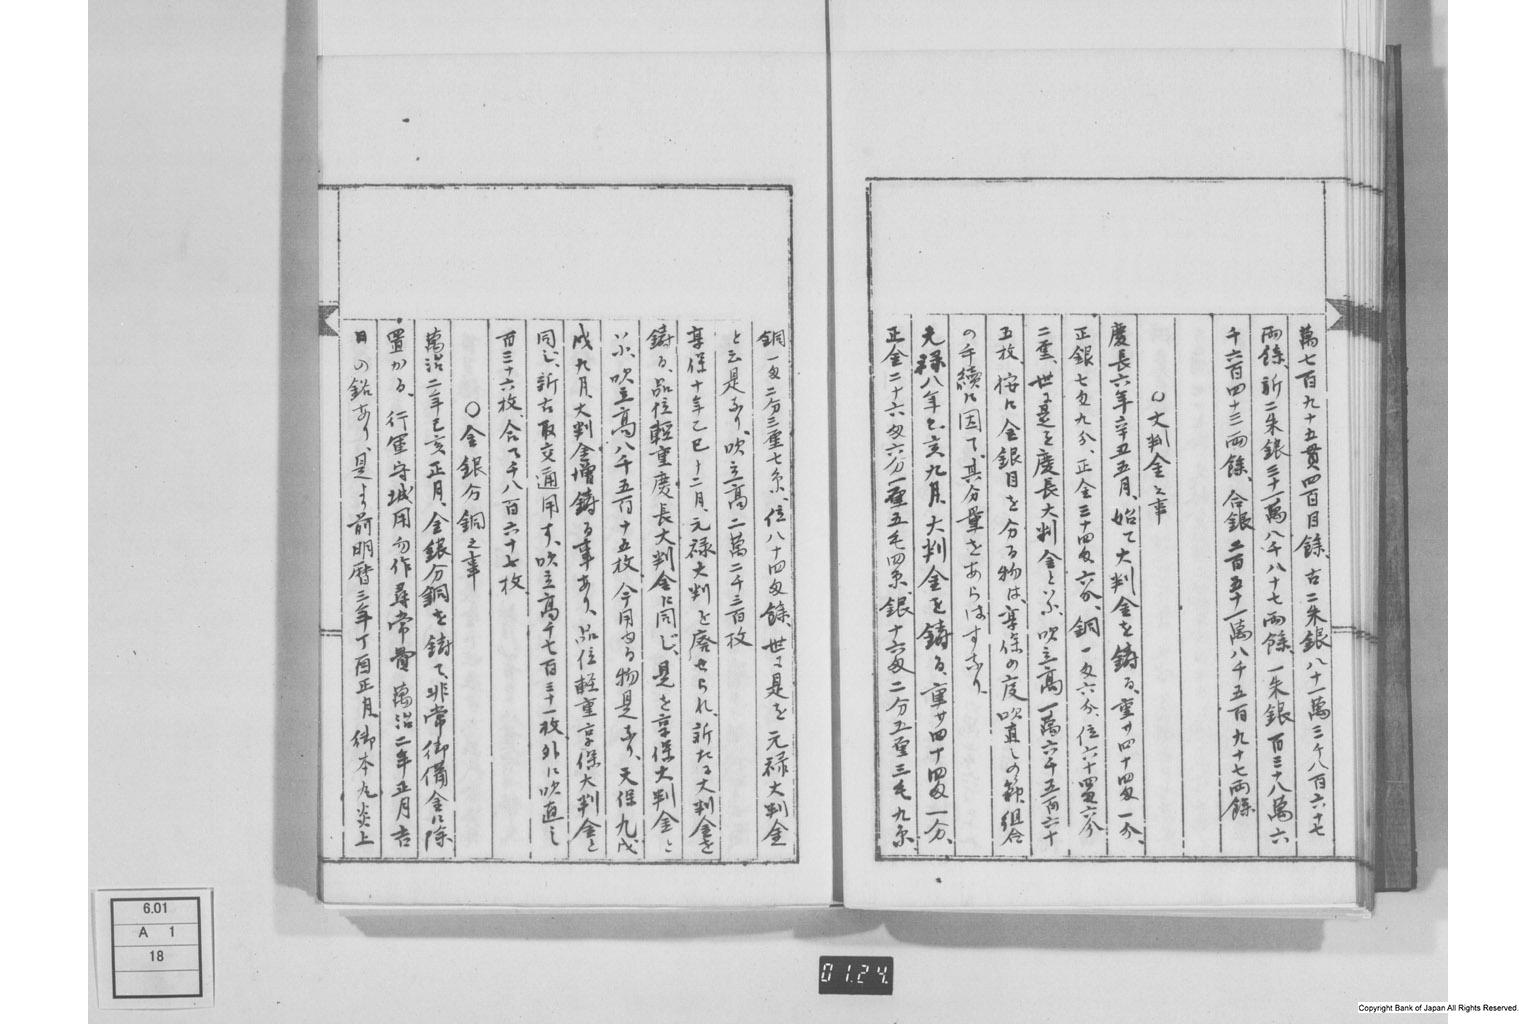 萬七百九十五貫四百目餘、古二朱銀八十一萬三千八百六十七
両餘、新二朱銀三十一萬八千八十七両餘、一朱銀百三十八萬六
千六百四十三両餘、合銀二百五十一萬八千五百九十七両餘
〇大判金之事
慶長六年辛丑五月、始て大判金を鋳る、重サ四十四匁一分、
正銀七匁九分、正金三十四匁六分、銅一匁六分、位六十四匁六分
二厘、世に是を慶長大判金と云、吹立高一萬六千五百六十
五枚、按に金銀目を分る物は、享保の度吹直しの節、組合
の手續に因て、其分量をあらはすなり
元禄八年乙亥九月、大判金を鋳る、重サ四十四匁一分、
正金二十六匁六分一厘五毛四糸、銀十六匁二分五厘三毛九糸、
銅一匁二分三厘七糸、位八十四匁餘、世に是を元禄大判金
と云是なり、吹立高二萬二千三百枚
享保十年乙巳十二月、元禄大判を廃せられ、新たに大判金を
鋳る、品位軽重慶長大判金に同じ、是を享保大判金と
云、吹立高八千五百十五枚、今用ゆる物是なり、天保九戊
戌九月、大判金増鋳る事あり、品位軽重享保大判金と
同じ、新古取交通用す、吹立高千七百三十一枚、外に吹直し
百三十六枚、合て千八百六十七枚
〇金銀分銅之事
萬治二年己亥正月、金銀分銅を鋳て、非常御備金に除
置かる、行軍守城用勿作尋常費 萬治二年正月吉
日の銘あり、是より前明暦三年丁酉正月、御本丸炎上
6.01
A 1
18
01.24.
Copyright Bank of Japan All Rights Reserved.